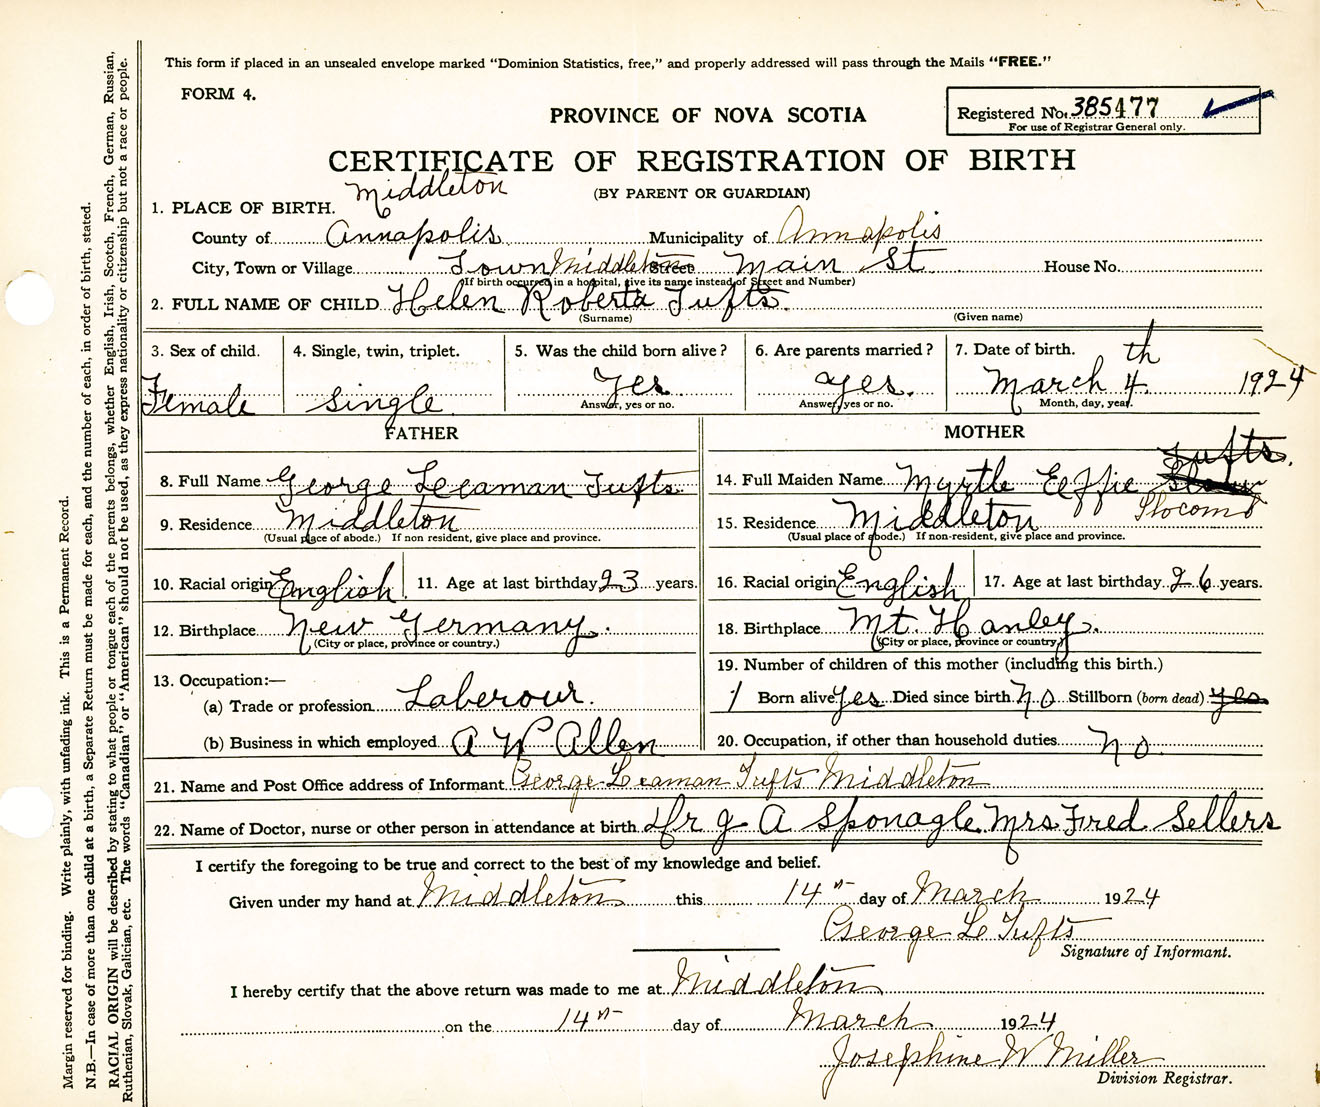 This form if placed in an unsealed envelope marked "Dominion Statistics, free," and properly addressed will pass through the Mails "FREE."
FORM 4.
PROVINCE OF NOVA SCOTIA
Registered No. 385477
For use of Registrar General only.
CERTIFICATE OF REGISTRATION OF BIRTH
(BY PARENT OR GUARDIAN)
Middleton
1. PLACE OF BIRTH.
County of Annapolis Municipality of Annapolis
City, Town or Village Town Middleton Street Main St House No.
(If birth occurred in a hospital, give its name instead of Street and Number)
2. FULL NAME OF CHILD Helen Roberta Tufts.
(Surname) (Given name)
3. Sex of child. 4. Single, twin, triplet. 5. Was the child born alive? 6. Are parents married? 7. Date of birth.
Female single Yes yes. March 4th 1924
Answer, yes or no. Answer, yes or no. Month, day, year.
FATHER MOTHER
8. Full Name George Leaman Tufts 14. Full Maiden Name Myrtle Effie Tufts. Slocomb
9. Residence Middleton 15. Residence Middleton
(Usual place of abode.) If non resident, give place and province. (Usual place of abode.) If non-resident, give place and province.
10. Racial origin English. 11. Age at last birthday 23 years. 16. Racial origin English 17. Age at last birthday 26 years.
12. Birthplace New Germany. 18. Birthplace Mt. Hanley.
(City or place, province or country.) (City or place, province or country.)
13. Occupation:— 19. Number of children of this mother (including this birth.)
(a) Trade or profession Laberour. 1 Born alive yes Died since birth no Stillborn (born dead) yes
(b) Business in which employed A W Allen 20. Occupation, if other than household duties no.
21. Name and Post Office address of Informant George Leaman Tufts Middleton
22. Name of Doctor, nurse or other person in attendance at birth Dr J A Sponagle Mrs Fred Sellers
I certify the foregoing to be true and correct to the best of my knowledge and belief.
Given under my hand at Middleton this 14th day of March 1924
George L Tufts
Signature of Informant.
I hereby certify that the above return was made to me at Middleton
on the 14th day of March 1924
Josephine W Miller
Division Registrar.
Margin reserved for binding. Write plainly, with unfading ink. This is a Permanent Record.
N.B.—In case of more than one child at a birth, a Separate Return must be made for each, and the number of each, in order of birth, stated.
RACIAL ORIGIN will be described by stating to what people or tongue each of the parents belongs, whether English, Irish, Scotch, French, German, Russian,
Ruthenian, Slovak, Galician, etc. The words "Canadian" or "American" should not be used, as they express nationality or citizenship but not a race or people.